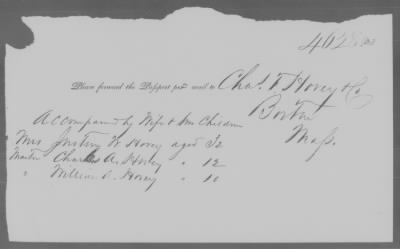 Please forward the Passport per mail to Chas. F. Hovey & Co
Boston
Mass.
Accompanied by Wife & Children
Mrs Justin W. Hovey aged 32
Master Charles A. Hovey " 12
" William A. Hovey " 10